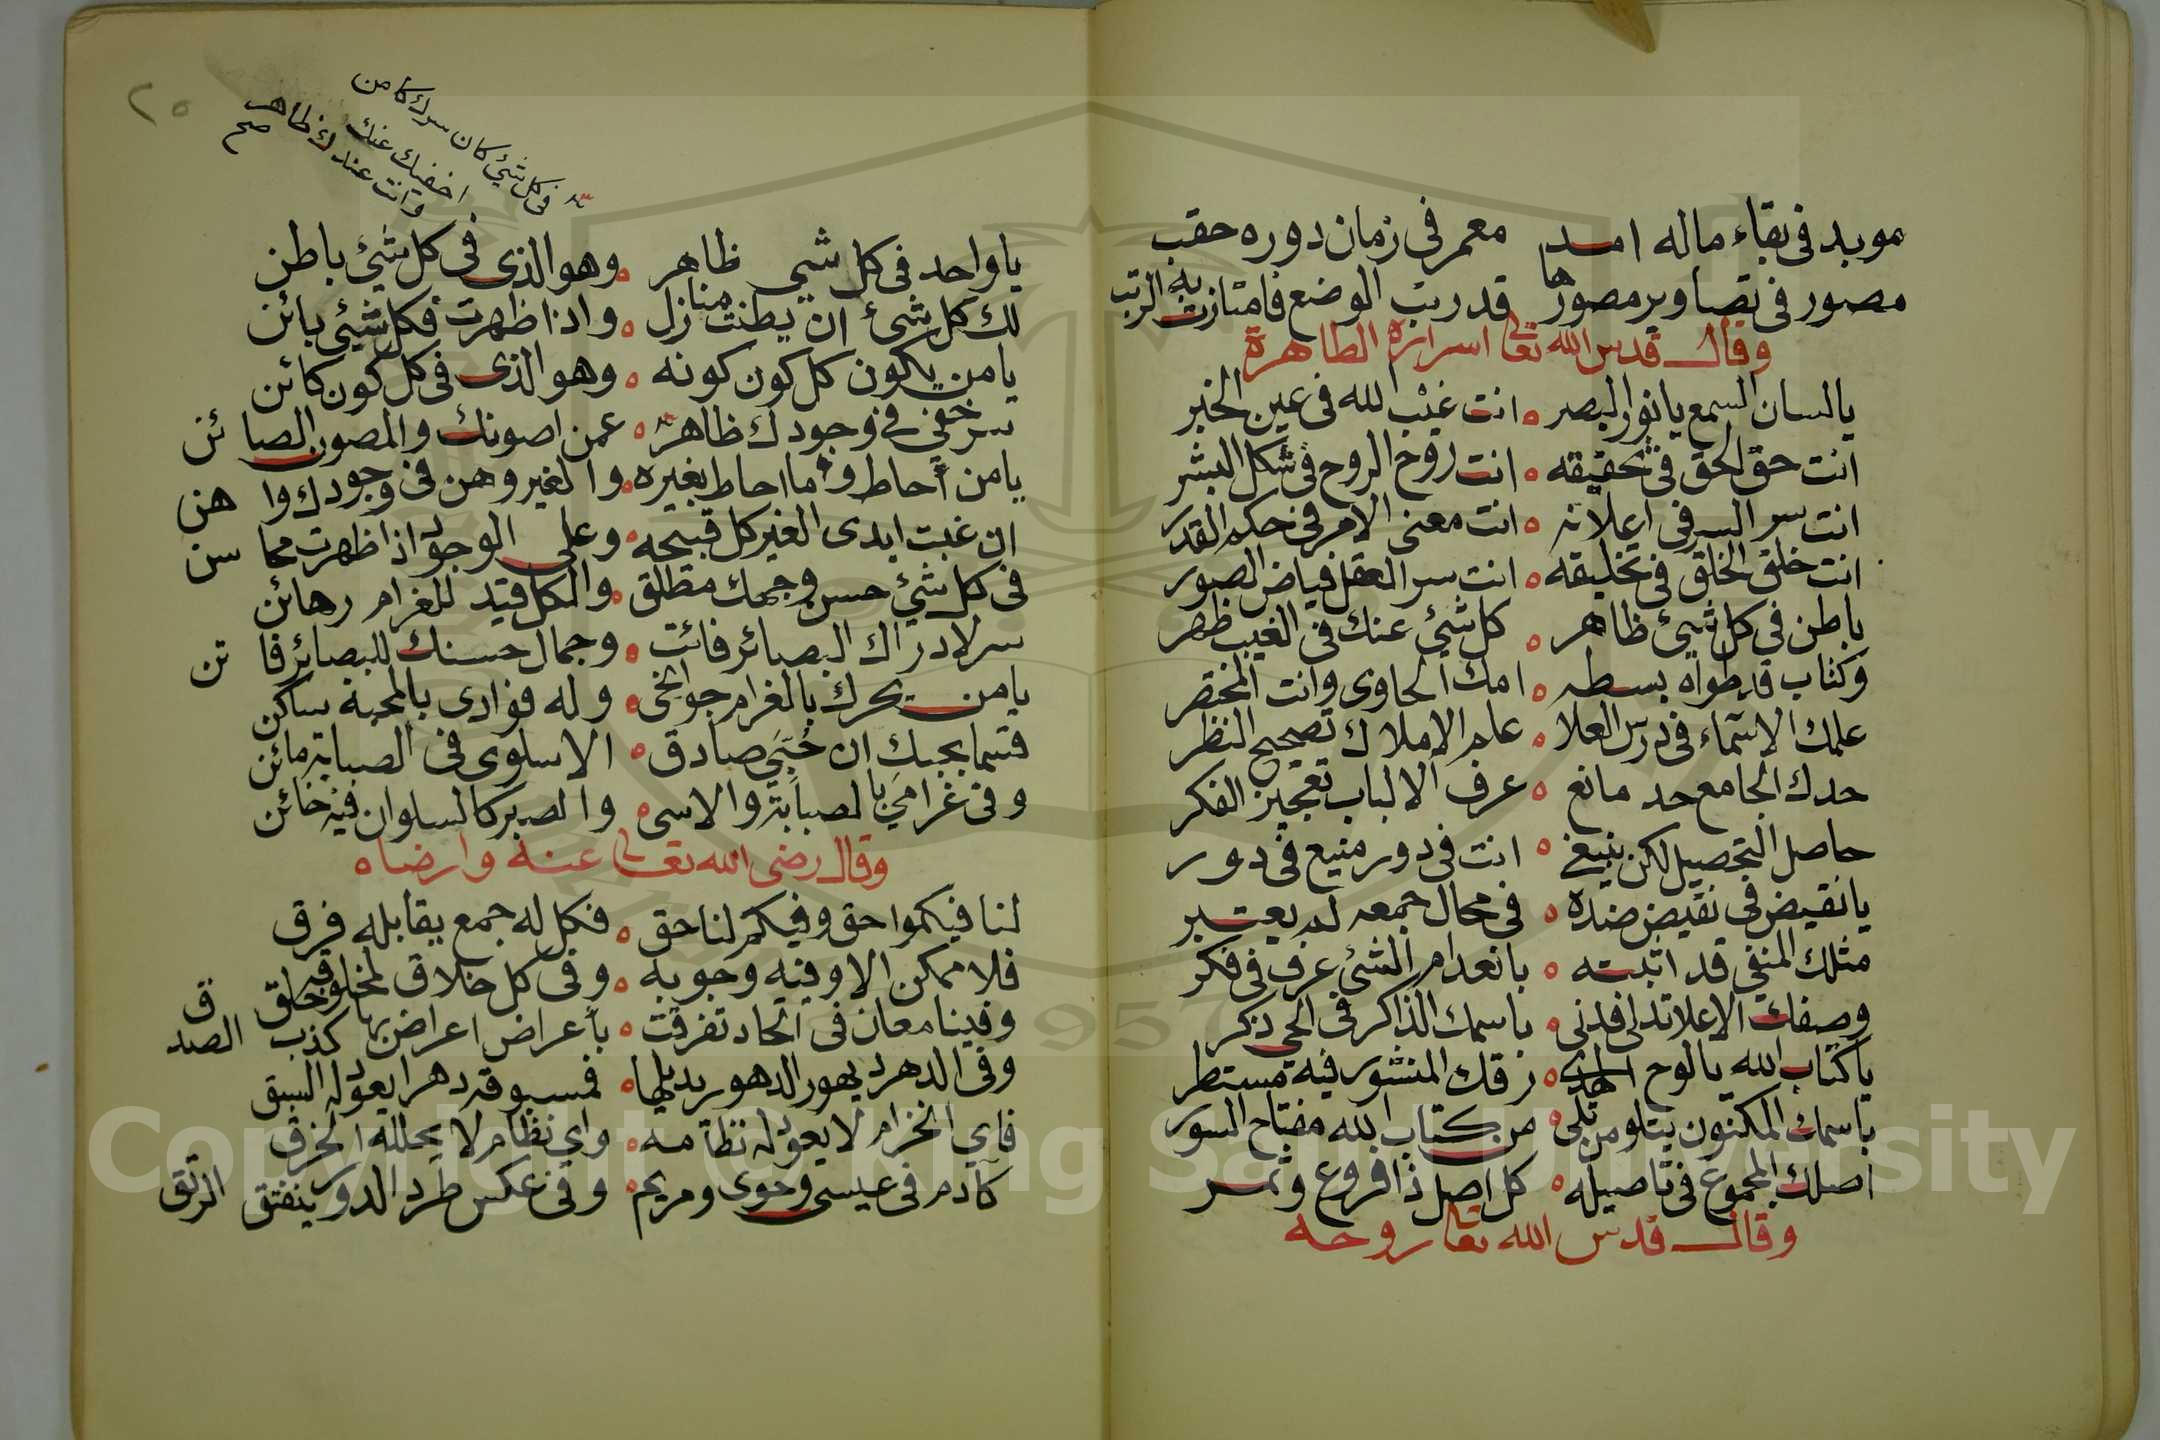 موبد فى بقاء ماله امد معمر فى زمان دوره حقب
مصور فى تصاوير مصورها قد رتب الوضع فامتازت به الرتب
وقال قدس الله تعالى اسراره الطاهرة
يالسان السمع يانور البصر انت غيب الله فى عين الخبر
انت حق الحق فى تحقيقه انت روح الروح فى شكل البشر
انت سر السر فى اعلانه انت معنى الامر فى حكم القدر
انت خلق الخلق فى تخليقه انت سر العقل فياض الصور
باطن في كل شئ ظاهر كل شئ عنك فى الغيب ظهر
وكتاب قد طواه بسطه امك الحاوى وانت المختصر
علمك الاسماء فى درس العلا علم الاملاك تصحيح النظر
حدك الجامع حد مانع عرف الالباب تعجيز الفكر
حاصل التحصيل لكن ينبغي انت فى دور منيع فى دور
يانقيض فى نقيض ضده فى محال جمعه لم يعتبر
مثلك المنفى قد اثبته بانعدام الشئ عرف فى فكر
وصفك الاعلا تدلى فدنى باسمك الذاكر فى الحى ذكر
ياكتاب الله يالوح الهدى رقك المنثور فيه مستطر
باسمك المكنون يتلو من تلى من كتاب الله مفتاح السور
اصلك المجموع فى تاصيله كل اصل ذا فروع وثمر
وقال قدس الله تعا روحه
٢٥
فى كل شئ كان سرك كامن
اخفيك عنك
وانت عندك ظاهر
صح
ياواحد فى كل شيى ظاهر وهو الذى فى كل شئ باطن
لك كل شئ ان بطنت منازل واذا ظهرت فكل شئ بائن
يا من يكون كل كون كونه وهو الذى فى كل كون كائن
سر خفي في وجودك ظاهر عمن اصونك والمصور الصائن
يا من أحاط وما احاط بغيره والغير وهن فى وجودك واهن
ان غبت ابدى الغير كل قبيحه وعلى الوجود اذا ظهرت محاسن
فى كل شئ حسن وجهك مطلق والكل قيد للغرام رهائن
سر لادراك البصائر فائت وجمال حسنك للبصائر فاتن
يا من تحرك بالغرام جوانحى وله فوادى بالمحبة ساكن
قسما بحبك ان حُبّي صادق الا سلوى فى الصبابة مائن
وفى غرامي بالصبابة والاسى والصبر كالسلوان فيه خائن
وقال رضى الله تعالى عنه وارضاه
لنا فيكموا حق وفيكم لنا حق فكل له جمع يقابله فرق
فلا ممكن الا وفيه وجوبه وفى كل خلاق لمخلوقه خلق
وفينا معان فى اتحاد تفرقت بأعراض اعراض بها كذب الصدق
وفى الدهر ديهور الدهور يديلها فمسبوقه دهرا يعود له السبق
فاي انخرام لا يعود له نظامه واي نظام لا يحلله الخرق
كآدم فى عيسى وحوى ومريم وفى عكس طرد الدور ينفتق الرتق